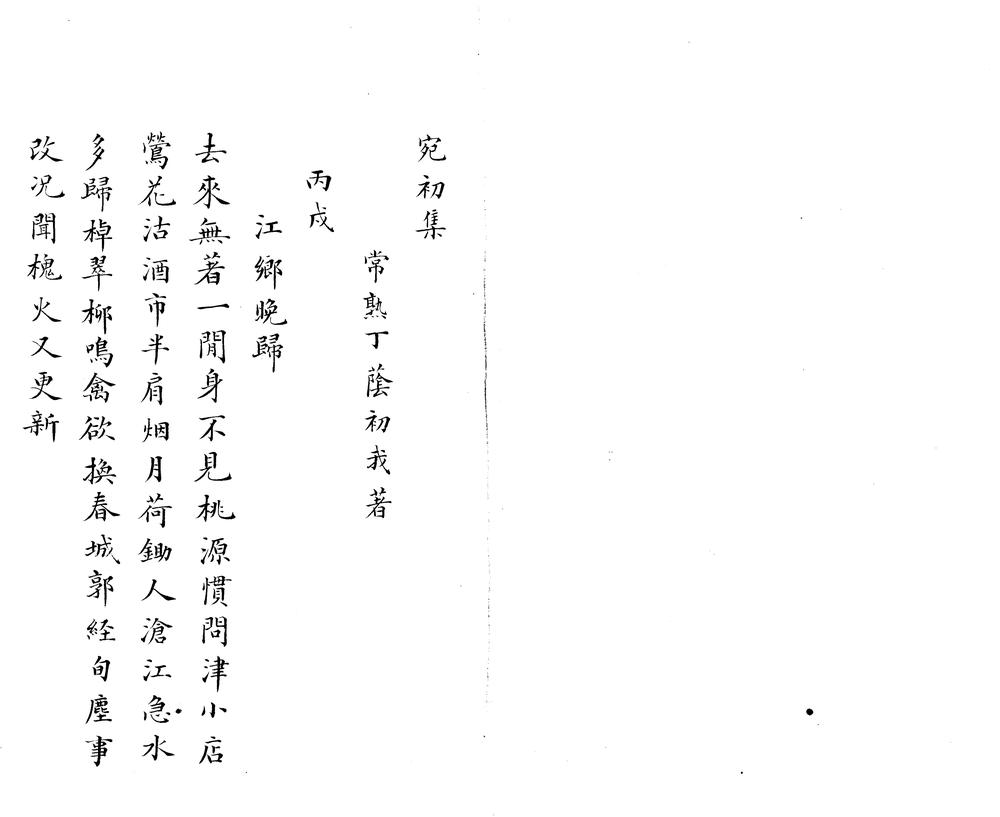 宛初集
常熟丁蔭初我著
丙戌
江鄉晚歸
去來無著一閒身不見桃源慣問津小店
鶯花沽酒市半肩烟月荷鋤人滄江急水
多歸棹翠柳鳴禽欲換春城郭経旬塵事
改况聞槐火又更新